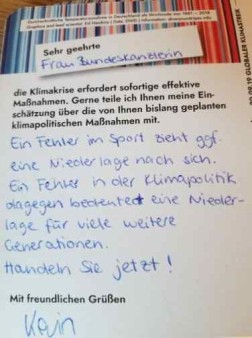 Durchschnittliche Temperaturabweichung in Deutschland
Sehr geehrte
Frau Bundeskanzlerin
die Klimakrise erfordert sofortige effektive
Maßnahmen. Gerne teile ich Ihnen meine Ein-
schätzung über die von Ihnen bislang geplanten
klimapolitischen Maßnahmen mit.
Ein Fehler im Sport zieht ggf.
eine Niederlage nach sich.
Ein Fehler in der Klimapolitik
dagegen bedeutet eine Nieder-
lage für viele weitere
Generationen.
Handeln Sie jetzt!
Mit freundlichen Grüßen
20.09.19 GLOBALER KLIMASTREIK